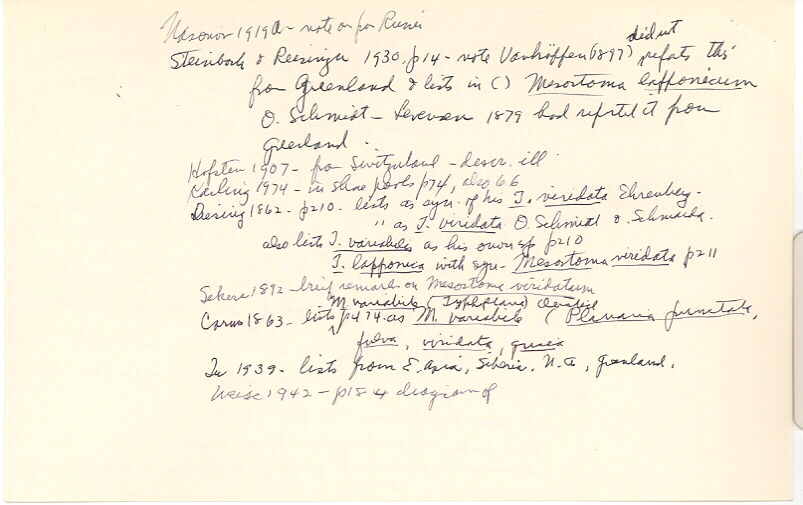 Nasonov 1919a - note on for Russia
Steinböck & Reisinger 1930, p14 - note Vanhöffen (1897) did not refer to this
from Greenland & lists in ( ) Mesostoma lapponicum
O. Schmidt - Levinsen 1879 had reported it from
Greenland.
Hofsten 1907 - from Switzerland - descr. ill.
Karling 1974 - in shore pools p74, also 66
Diesing 1862 - p210 - lists as syn. of his T. viridata Ehrenberg -
" as T. viridata O. Schmidt & Schmarda.
also lists T. variabile as his own sp p210
T. lapponica with syn - Mesostoma viridata p211
Sekera 1892 - brief remark on Mesostoma viridatum
M. variabile (Typhloplana) Oersted
Carus 1863 - lists p474 as M. variabile (Planaria punctata,
fulva, viridata, grisea
Tu 1939 - lists from E. Asia, Siberia, N. A., Greenland,
Weise 1942 - p184 diagram of